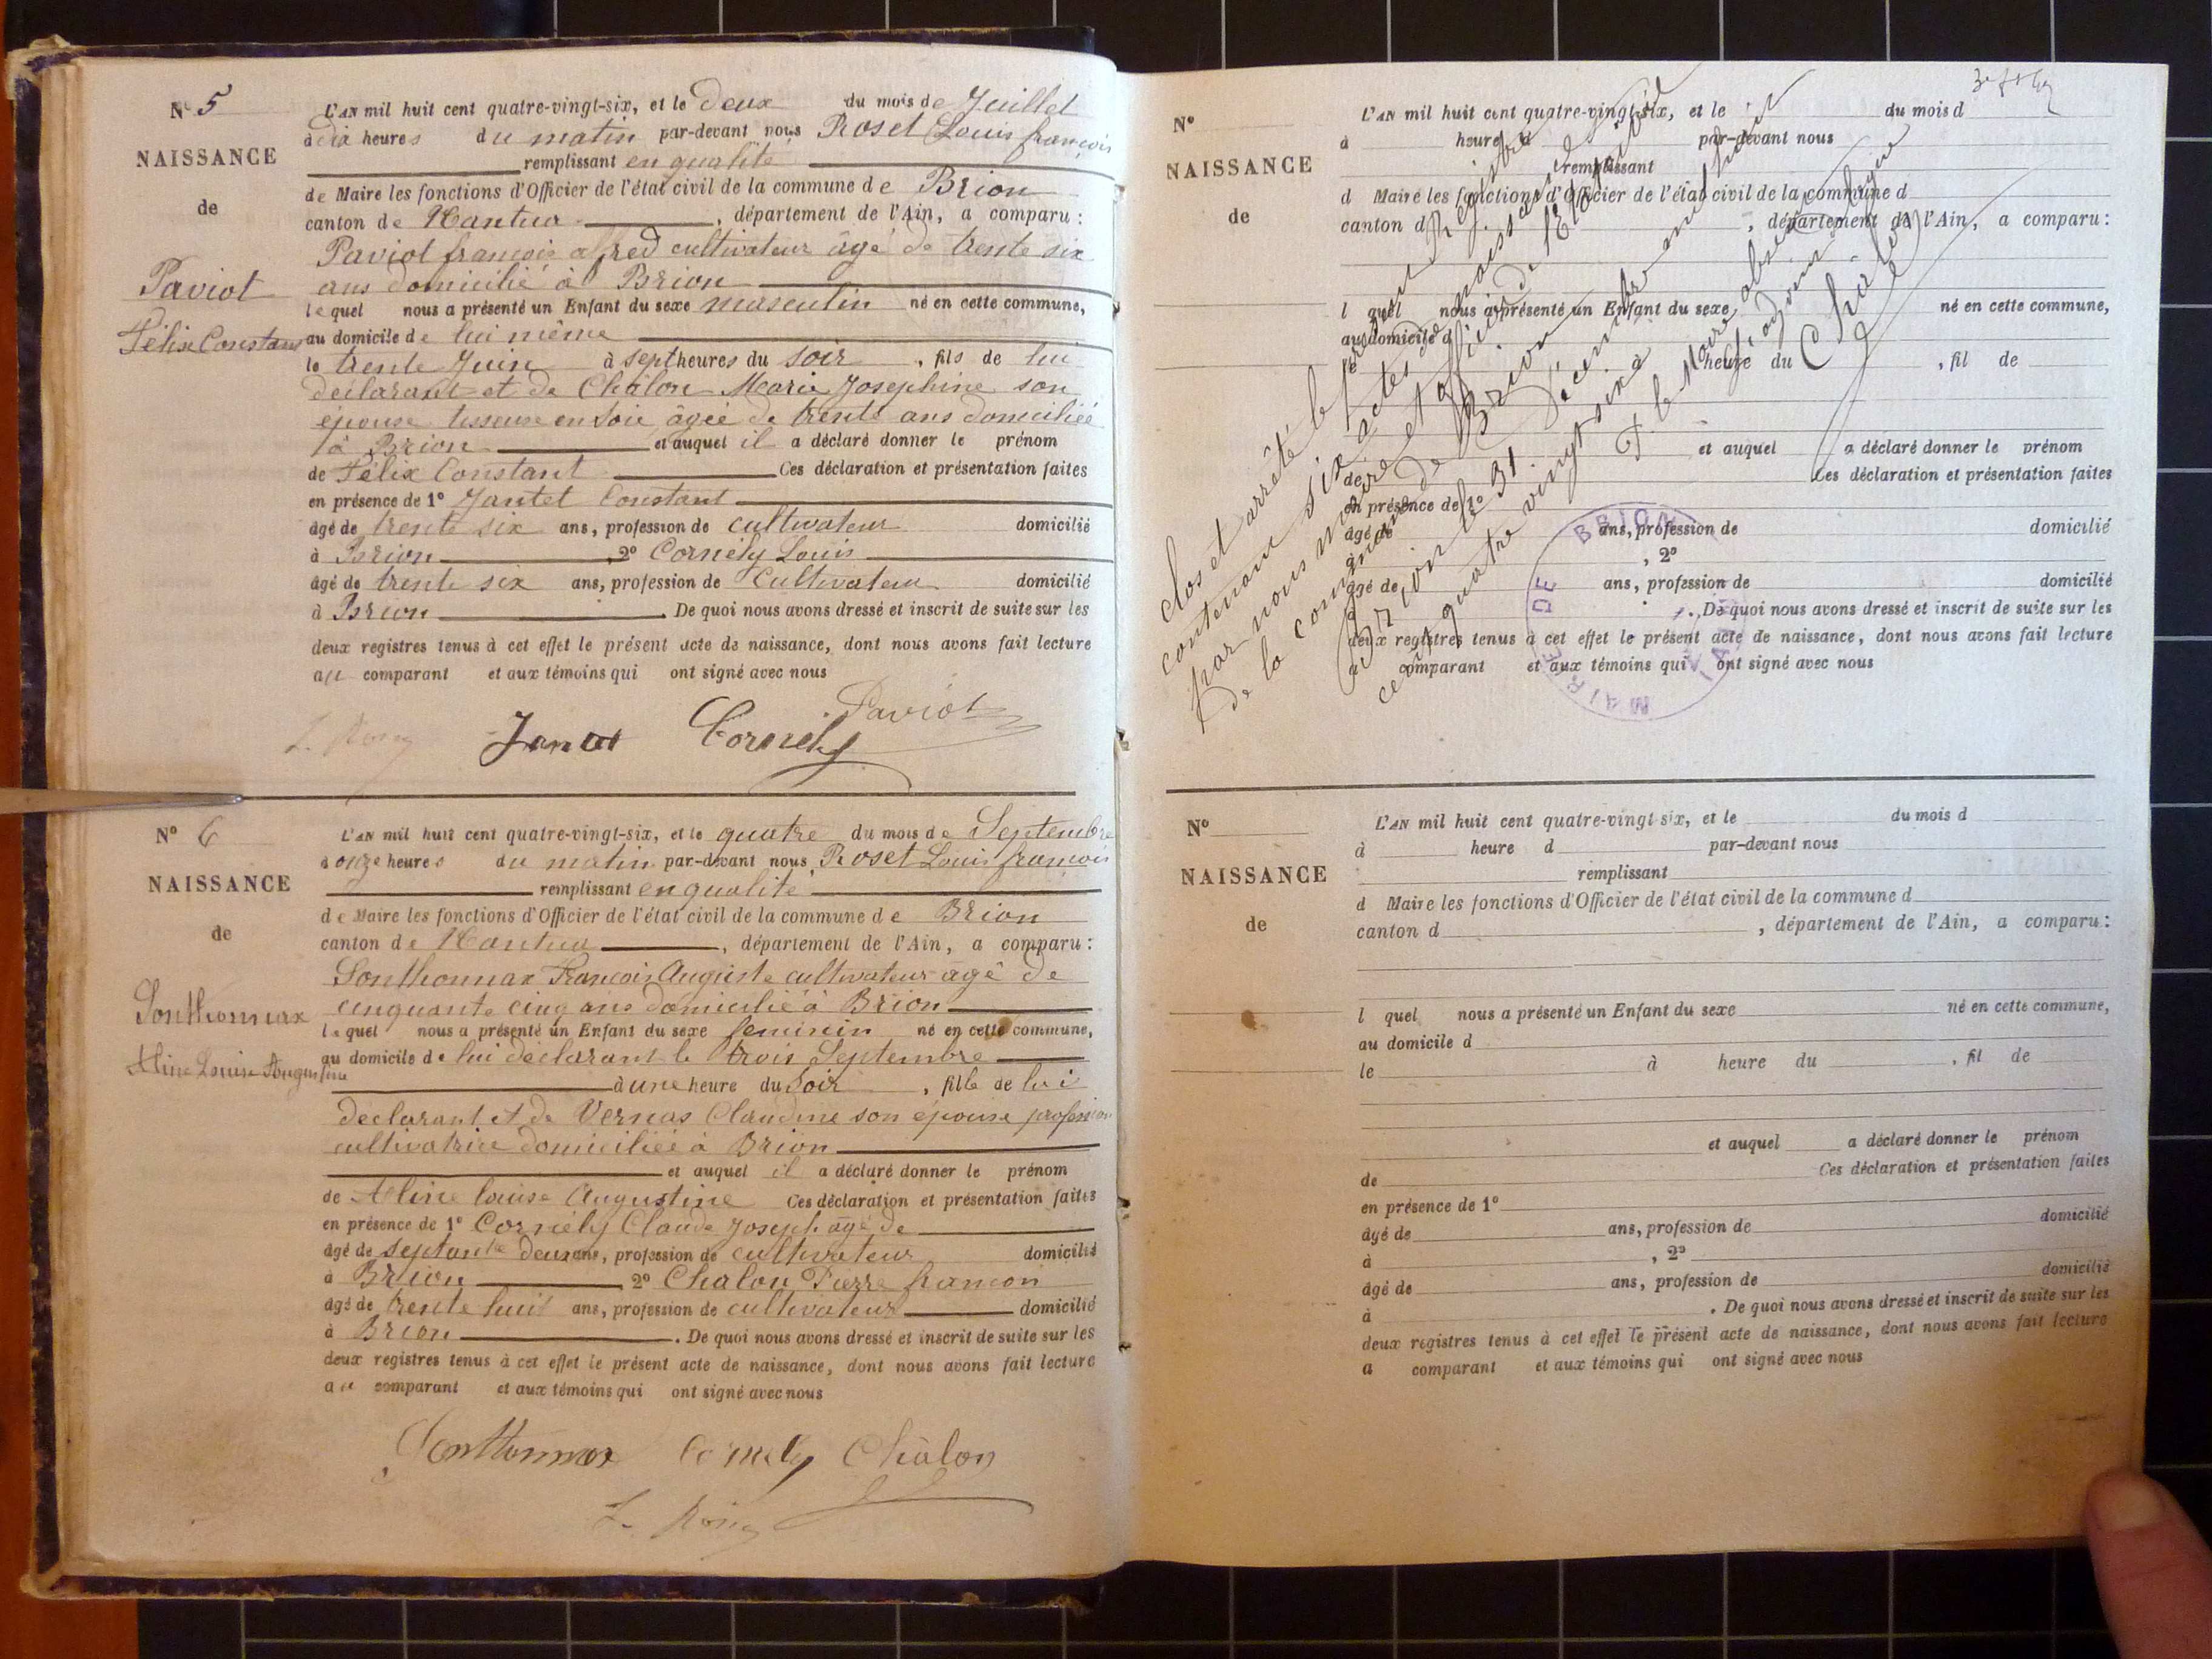 N° 5
NAISSANCE
de
Paviot
Félix Constant
L'AN mil huit cent quatre-vingt-six, et le deux du mois de Juillet
à dix heures du matin par-devant nous Roset Louis françois
remplissant en qualité
de Maire les fonctions d'Officier de l'état civil de la commune de Brion
canton de Nantua, département de l'Ain, a comparu :
Paviot françois alfred cultivateur âgé de trente six
ans domicilié à Brion
lequel nous a présenté un Enfant du sexe masculin né en cette commune,
au domicile de lui même
le trente Juin à sept heures du soir, fils de lui
déclarant et de Châlon Marie Josephine son
épouse tisseuse en soie âgée de trente ans domiciliée
à Brion et auquel il a déclaré donner le prénom
de Félix Constant Ces déclaration et présentation faites
en présence de 1° Jantet Constant
âgé de trente six ans, profession de cultivateur domicilié
à Brion 2° Cornely Louis
âgé de trente six ans, profession de cultivateur domicilié
à Brion. De quoi nous avons dressé et inscrit de suite sur les
deux registres tenus à cet effet le présent acte de naissance, dont nous avons fait lecture
au comparant et aux témoins qui ont signé avec nous
Paviot
Jantet Cornely
N° 6
NAISSANCE
de
Sonthonnax
Aline Louise Augustine
L'AN mil huit cent quatre-vingt-six, et le quatre du mois de Septembre
à onze heures du matin par-devant nous Roset Louis françois
remplissant en qualité
de Maire les fonctions d'Officier de l'état civil de la commune de Brion
canton de Nantua, département de l'Ain, a comparu :
Sonthonnax François Auguste cultivateur âgé de
cinquante cinq ans domicilié à Brion
lequel nous a présenté un Enfant du sexe feminin né en cette commune,
au domicile de lui déclarant le trois Septembre
à une heure du soir, fille de lui
declarant et de Vernas Claudine son épouse profession
cultivatrice domiciliée à Brion
et auquel il a déclaré donner le prénom
de Aline louise Augustine Ces déclaration et présentation faites
en présence de 1° Cornély Claude Joseph âgé de
âgé de septante deux ans, profession de cultivateur domicilié
à Brion 2° Chalon Pierre
âgé de trente huit ans, profession de cultivateur domicilié
à Brion. De quoi nous avons dressé et inscrit de suite sur les
deux registres tenus à cet effet le présent acte de naissance, dont nous avons fait lecture
au comparant et aux témoins qui ont signé avec nous
Sonthonnax Cornely Châlon
N°
NAISSANCE
de
L'AN mil huit cent quatre-vingt-six, et le du mois d
à heure d par-devant nous
remplissant
d Maire les fonctions d'Officier de l'état civil de la commune d
canton d, département de l'Ain, a comparu :
l quel nous a présenté un Enfant du sexe né en cette commune,
au domicile d
le à heure du, fil de
et auquel a déclaré donner le prénom
de Ces déclaration et présentation faites
en présence de 1°
âgé de ans, profession de domicilié
à, 2°
âgé de ans, profession de domicilié
à. De quoi nous avons dressé et inscrit de suite sur les
deux registres tenus à cet effet le présent acte de naissance, dont nous avons fait lecture
a comparant et aux témoins qui ont signé avec nous
Clos et arrêté le présent Registre
contenant six actes de naissances
par nous Maire et officier de l'Etat civil
de la commune de Brion
Brion le 31 décembre mil huit
cent quatre vingt six
P le Maire absent
l'adjoint
Châlon
MAIRIE DE BRION AIN
N°
NAISSANCE
de
L'AN mil huit cent quatre-vingt-six, et le du mois d
à heure d par-devant nous
remplissant
d Maire les fonctions d'Officier de l'état civil de la commune d
canton d, département de l'Ain, a comparu :
l quel nous a présenté un Enfant du sexe né en cette commune,
au domicile d
le à heure du, fil de
et auquel a déclaré donner le prénom
de Ces déclaration et présentation faites
en présence de 1°
âgé de ans, profession de domicilié
à, 2°
âgé de ans, profession de domicilié
à. De quoi nous avons dressé et inscrit de suite sur les
deux registres tenus à cet effet le présent acte de naissance, dont nous avons fait lecture
a comparant et aux témoins qui ont signé avec nous